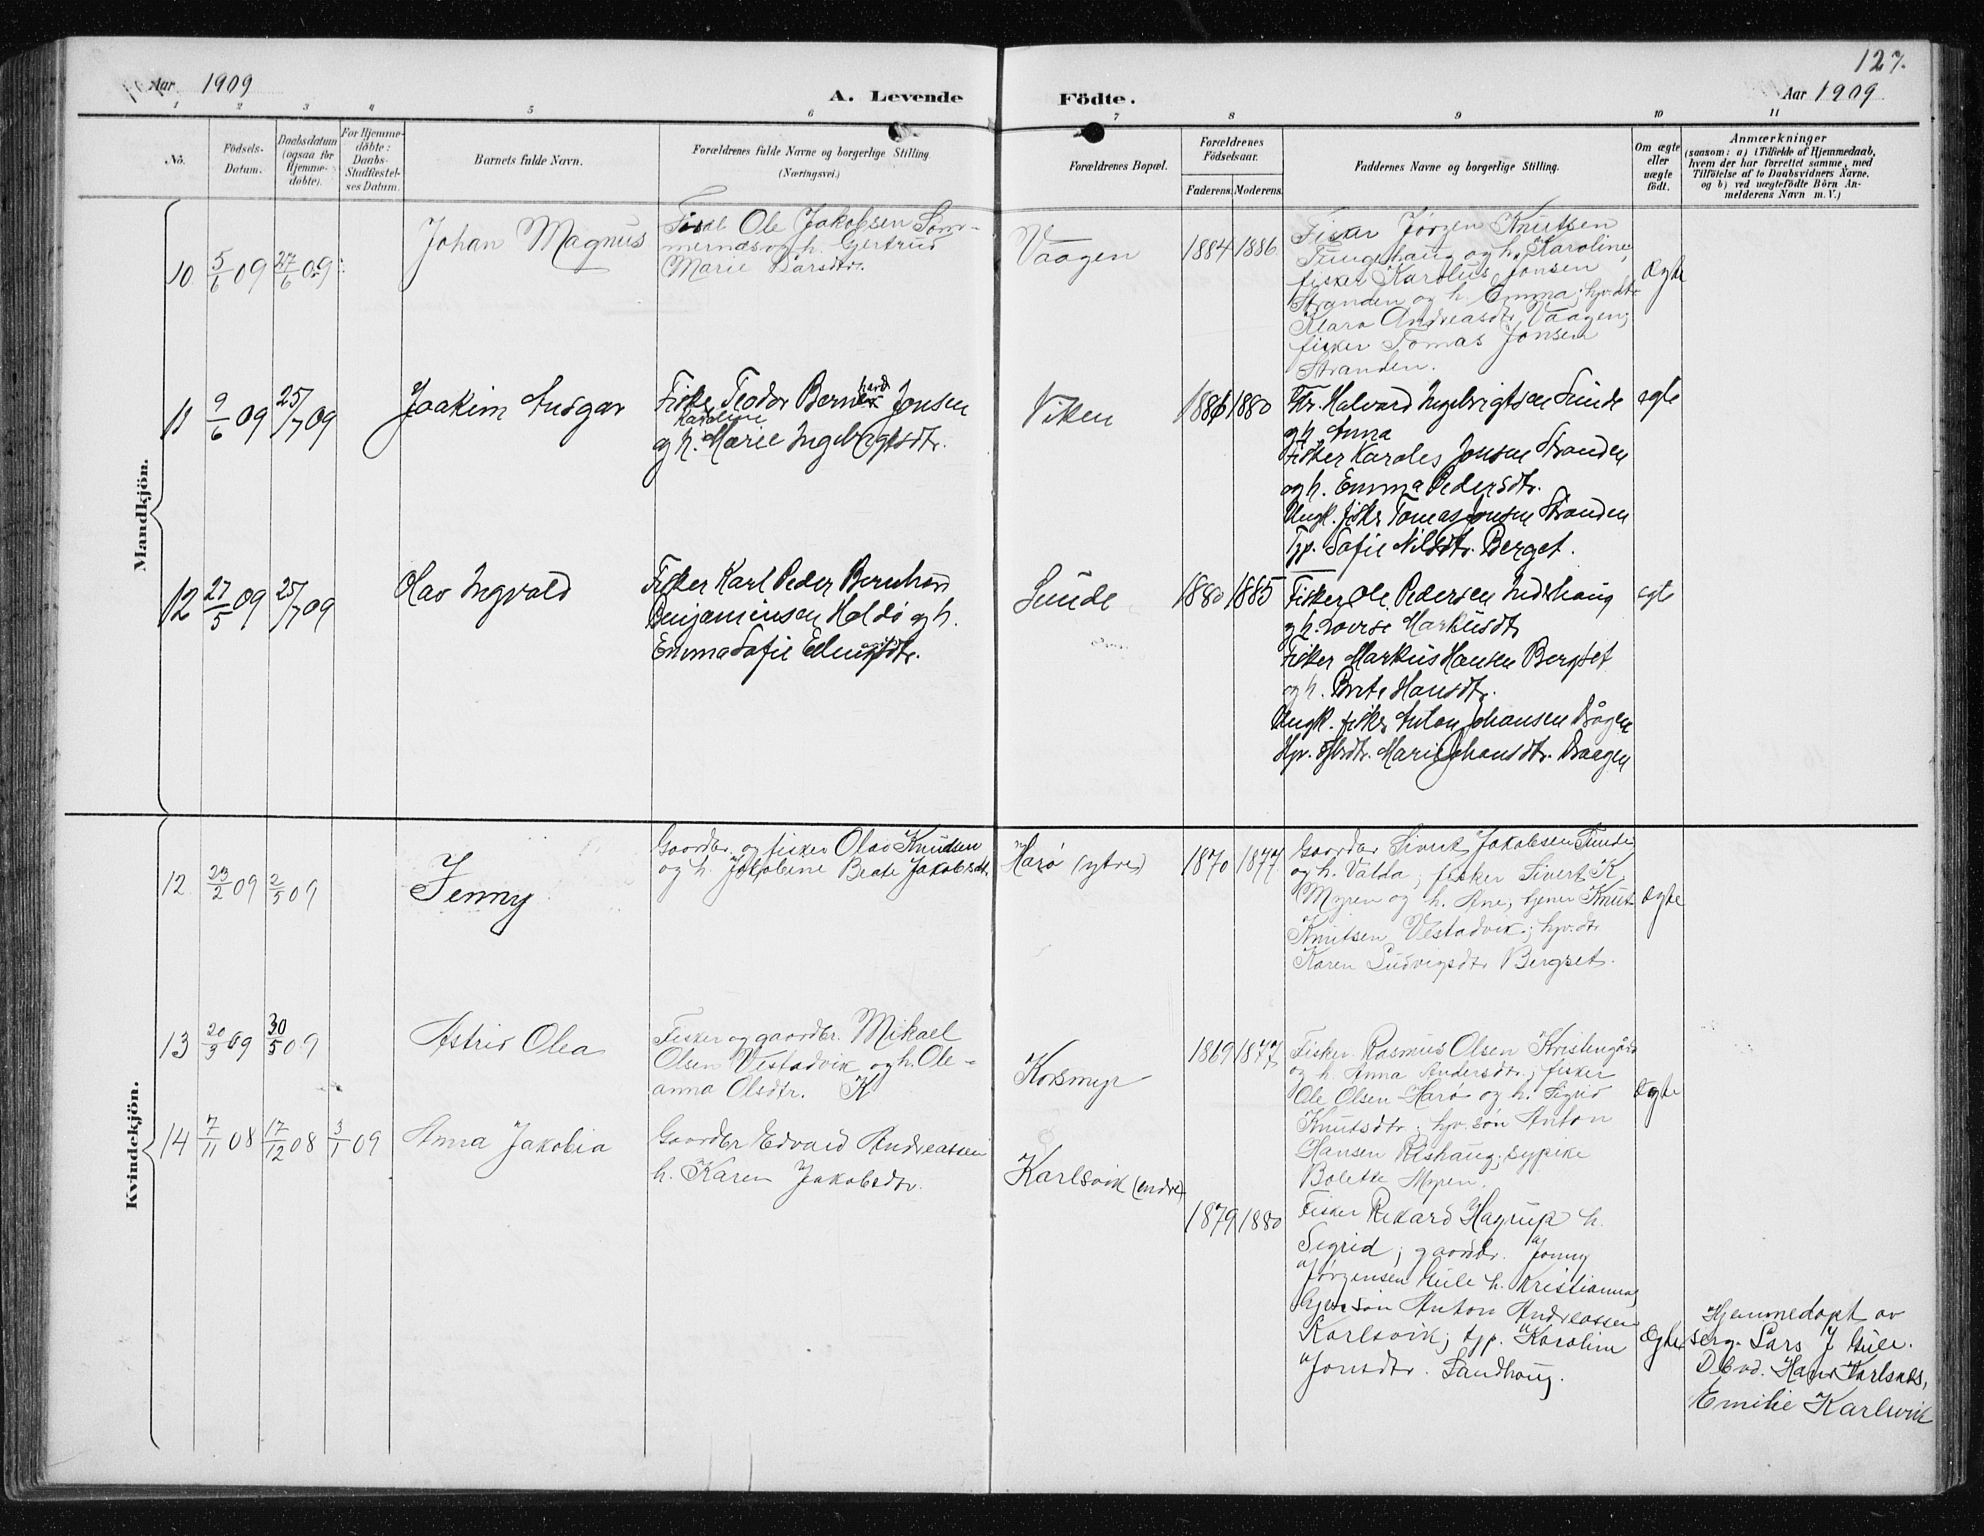 127.
Aar 1909
A. Levende Födte.
Aar 1909
1 2 3 4 5 6 7 8 9 10 11
No.
Födsels-
Datum.
Daabsdatum
(ogsaa for
Hjemme-
döbte).
For Hjemme-
döbte:
Daabs-
Stadfæstel-
ses Datum.
Barnets fulde Navn.
Forældrenes fulde Navne og borgerlige Stilling
(Næringsvei.)
Forældrenes Bopæl.
Forældrenes
Födselsaar.
Faderens. Moderens.
Faddernes Navne og borgerlige Stilling.
Om ægte
eller
uægte
födt.
Anmærkninger
(saasom: a) i Tilfælde af Hjemmedaab,
hvem der har forrettet samme, med
Tilföielse af to Daabsvidners Navne.
og b) ved uægtefödte Börn An-
melderens Navn m. V.)
Mandkjön.
10 5/6 09 27/6 09
Johan Magnus
Ole Jakobsen Som-
mernæs og h. Gertrud
Marie Larsdtr.
Vaagen
1884 1886
Fisker Jørgen Knutsen
Tungehaug og h. Karoline;
fisker Karolus Jonsen
Stranden og h. Emma; hjv. dtr
Klara Andreasdtr Vaagen;
fisker Tomas Jonsen
Stranden.
Ægte
11 9/6 09 25/7 09
Joakim Ansgar
Fisker Teodor Bernhard Jonsen
Karoline
og h. Marie Ingebrigtsdtr.
Viken
1886 1880
Fkr. Halvard Ingebrigtsen Sunde
og h. Anna
Fisker Karoles Jonsen Stranden
og h. Emma Pedersdtr.
Ungk. fisker Tomas Jonsen Stranden
Tjp. Sofie Nilsdtr. Berget.
egte
12 27/5 09 25/7 09
Olav Ingvald
Fisker Karl Peder Bernhard
Benjaminsen Holdö og h.
Emma Sofie
Sunde
1880 1885
Fisker Ole Pedersen Inderhaug
og h. Lovise Markusdtr
Fisker Markus Hansen Bergset
og h. Brite Hansdtr.
Ungk. fisker Anton Johansen Vågen
Hjv. Marie Johansdtr. Vaagen
egte
Kvindekjön.
12 23/2 09 2/5 09
Jenny
Gaardbr. og fisker Olav Knudsen
og h. Jakobine Beate Jakobsdt.
Harø (ytre)
1870 1877
Gaardbr Sivert Jakobsen Sunde
og h. Valda; fisker Sivert K.
Myren og h. Ane; tjener Knut
Knutsen Vestadvik; hjv. dtr
Karen Ludvigsdtr Bergset.
Ægte
13 20/3 09 30/5 09
Astrid Olea
Fisker og gaardbr. Mikael
Olsen Vestadvik og h. Ole-
anna Olsdtr. K
Korsmyr
1869 1877
Fisker Rasmus Olsen Kristengård
og h. Anna Andersdtr.; fisker
Ole Olsen Harø og h. Sigrid
Knutsdtr; hjv. søn Anton
Hansen Rishaug; sypike
Bolette Myren.
Ægte
14 7/11 08 17/12 08 3/1 09
Anna Jakobia
Gaardbr Edvard Andreassen
h. Karen Jakobsdtr.
Karlsvik (indre)
1879 1880
Fisker Rikard Hagrup h.
Sigrid; gaardbr. Jonny
Jørgensen Gule h. Kristianna;
søn Anton Andreassen
Karlsvik; tjp. Karoline
Jonsdtr. Sandhaug.
Ægte
Hjemmedøpt av
serg. Lars J Gule.
D. b. vd. Hans Karlsnes,
Emilie Karlsvik